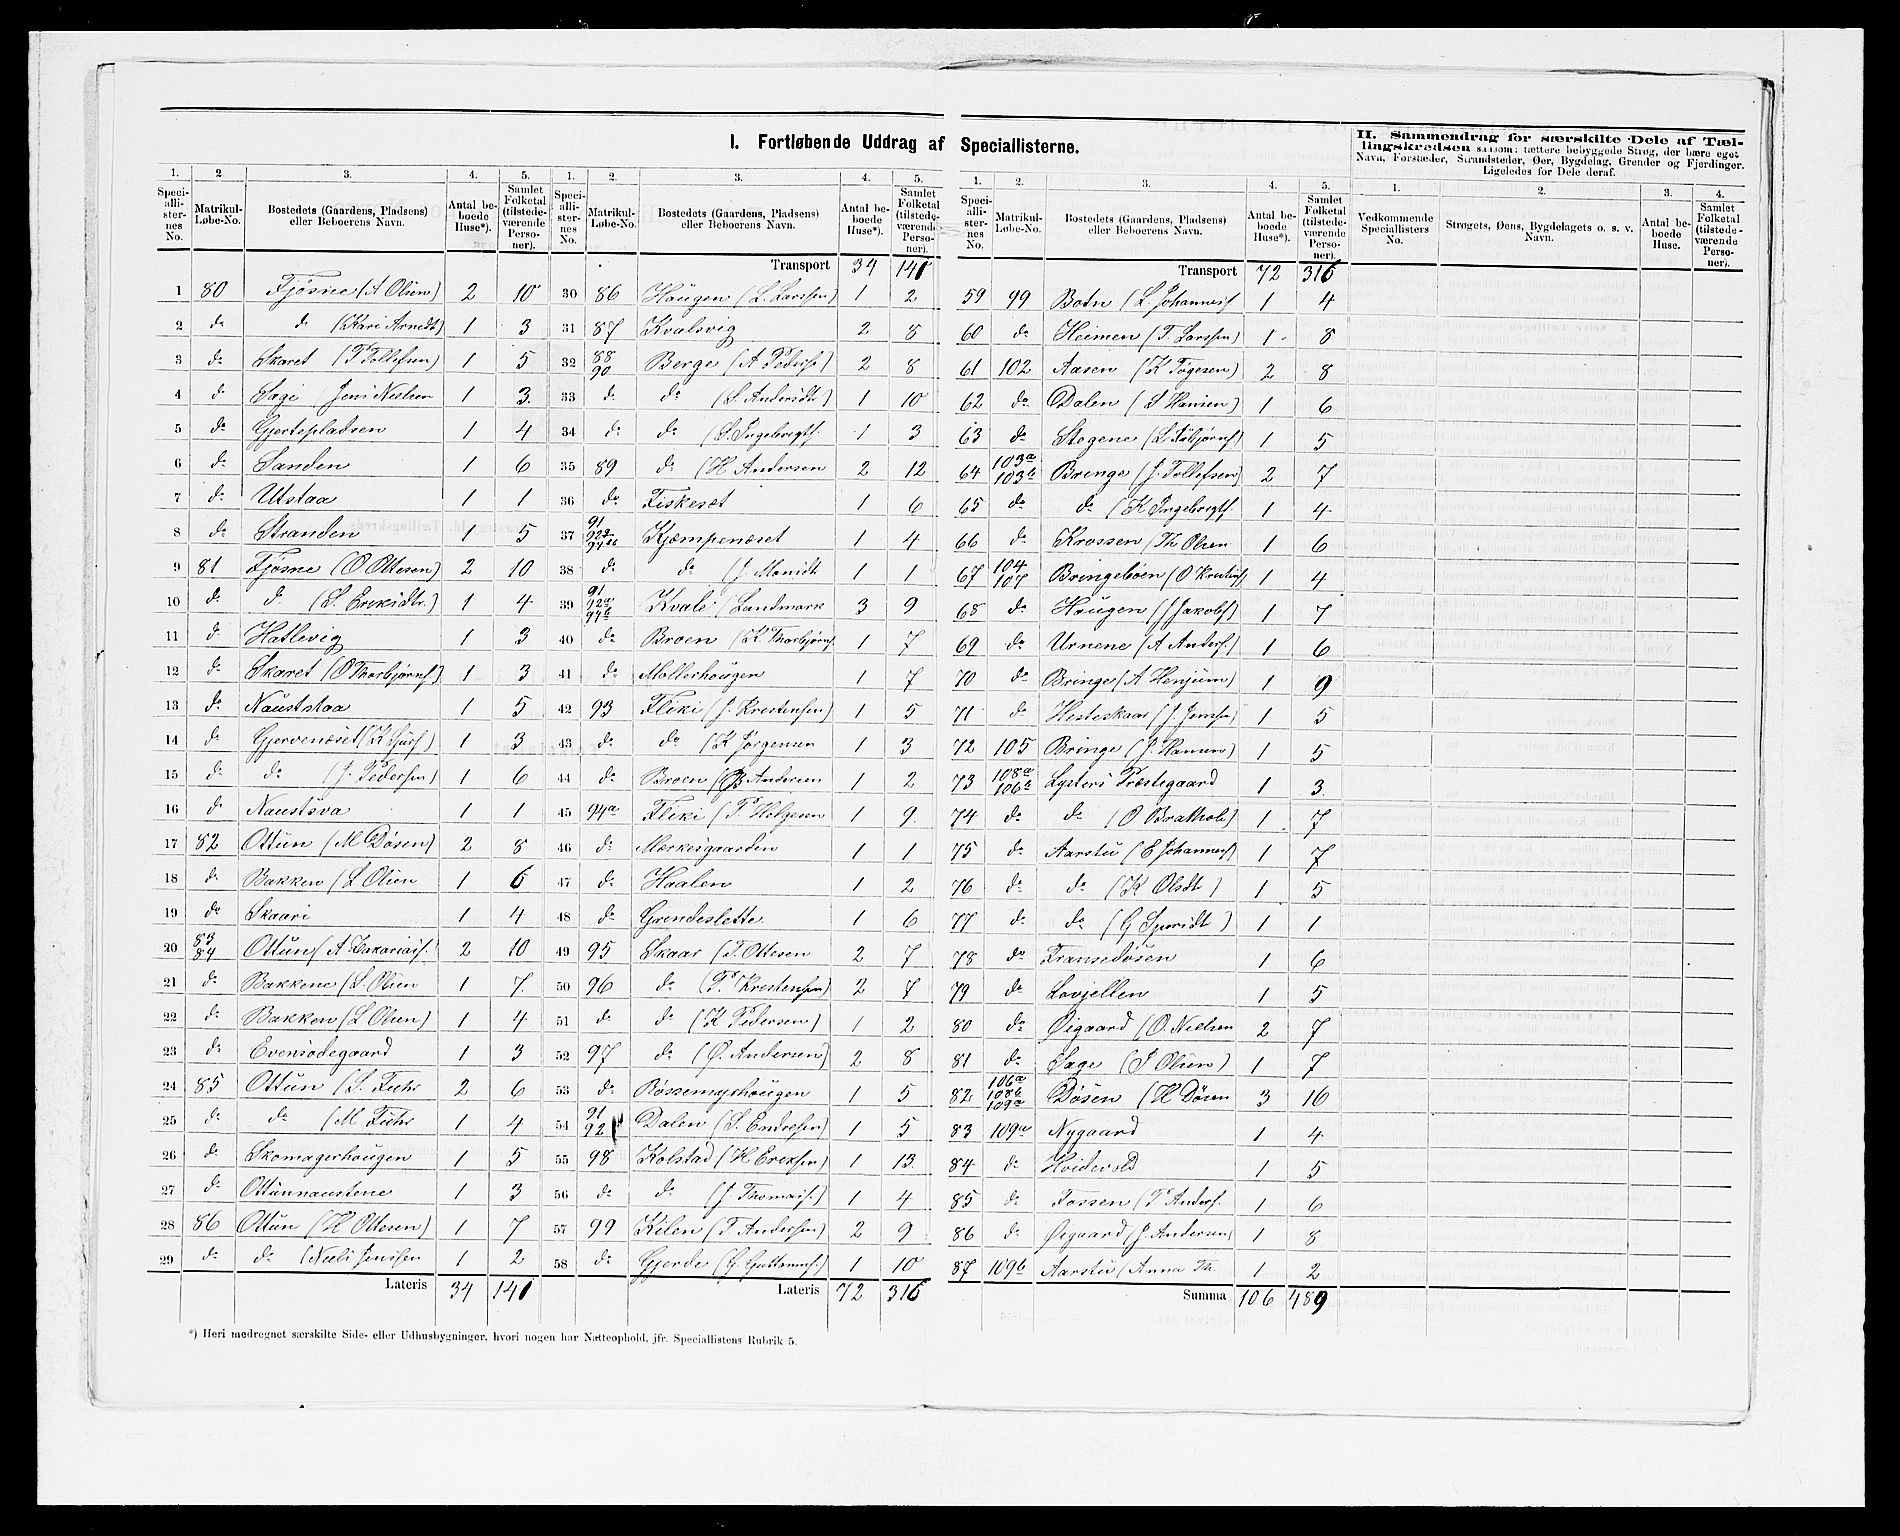 I. Fortløbende Uddrag af Speciallisterne.
II. Sammendrag for særskilte Dele af Tællingskredsen saasom: tættere bebyggede Strøg, der bære eget Navn, Forstæder, Strandsteder, Øer, Bygdelag, Grender og Fjerdinger. Ligeledes for Dele deraf.
1. 2 3. 4. 5. 1. 2. 3. 4. 5.
Speciallisternes No. Matrikul-Løbe-No. Bostedets (Gaardens, Pladsens) eller Beboerens Navn. Antal beboede Huse*). Samlet Folketal (tilstedeværende Personer). Speciallisternes No. Matrikul-Løbe-No. Bostedets (Gaardens, Pladsens) eller Beboerens Navn. Antal beboede Huse*). Samlet Folketal (tilstedeværende Personer).
1 80 Fjøsne (A Olsen) 2 10
2 do do (Kari Arnedt) 1 3
3 do Skaret (T Tollefsen) 1 5
4 do Sagi Jens Nielsen 1 3
5 do Gjertepladsen 1 4
6 do Sanden 1 6
7 do Utstaa 1 1
8 do Stranden 1 5
9 81 Fjøsne (O Ottesen) 2 10
10 do do (S. Eriksdtr.) 1 4
11 do Hatlevig 1 3
12 do Skaret (O Thorbjørns.) 1 3
13 do Nauststaa 1 5
14 do Gjervenæset (K Sjurs.) 1 3
15 do do (J. Pedersen) 1 6
16 do Naustsva 1 1
17 82 Ottun (M Døsen) 2 8
18 do Bakken (L Olsen 1 6
19 do Skaari 1 4
20 83 84 Ottun (A Zakariais.) 2 10
21 do Bakkene (S. Olsen 1 7
22 do Bakken (L Olsen) 1 4
23 do Evensødegaard 1 3
24 85 Ottun (S. Fuhr 2 6
25 do do (M Fuhr 1 4
26 do Skomagerhougen 1 5
27 do Ottunnaustene 1 3
28 86 Ottun (H Ottesen) 1 7
29 do do (Niels Jenssen 1 2
Lateris 34 141
Transport 34 141
30 86 Haugen (L. Larssen) 1 2
31 87 Kvalsvig 2 8
32 88 90 Berge (A Peders.) 2 8
33 do do (S. Andersdt) 1 10
34 do do (S. Ingebrigts. 1 3
35 89 do (H Andersen 2 12
36 do Fiskesæt 1 6
37 91 92a 94b Kjæmpenæset 1 4
38 do do (J. Monsdt 1 1
39 91 92a 94b Kvale (Landmark 3 9
40 do Broen (K Thorbjørns. 1 7
41 do Mollerhougen 1 7
42 93 Fliki (J. Kristensen) 1 5
43 do do (K Jørgensen 1 3
44 do Broen (B Andersen 1 2
45 94a Fliki (P Helgesen 1 9
46 do Mærkesgaarden 1 1
47 do Haalen 1 2
48 do Grindeslette 1 6
49 95 Skaar (T. Ottesen 2 7
50 96 do (P. Kristensen) 2 7
51 do do (K Pedersen) 1 2
52 97 do (O. Andersen) 2 8
53 do Bossemyrhougen 1 5
54 91 92 Dalen (S. Endresen) 1 5
55 98 Kolstad (H Eriksen) 1 13
56 do do (J. Thomass.) 1 4
57 99 Kilen (T Andersen) 2 9
58 do Gjerde (G. Guttorms.) 1 10
Lateris 72 316
1. 2. 3. 4. 5.
Speciallisternes No. Matrikul-Løbe-No. Bostedets (Gaardens, Pladsens) eller Beboerens Navn. Antal beboede Huse*). Samlet Folketal (tilstedeværende Personer).
Transport 72 316
59 99 Botn (L. Johannes. 1 4
60 do Heimen (T. Larssen) 1 8
61 102 Aasen (K Tøgesen) 2 8
62 do Dalen (S Hansen) 1 6
63 do Stegene (L. Esbjørns.) 1 5
64 103a 103b Bringe (J. Tollefsen) 2 7
65 do do (K Ingebrigts. 1 4
66 do Krossen (Th Olsen 1 6
67 104 107 Bringebøen (O Kristens. 1 4
68 do Haugen (J Jakobs.) 1 7
69 do Urnene (A Anders.) 1 6
70 do Bringe (A Henjum) 1 9
71 do Hesteskaar (J. Jenssen) 1 5
72 105 Bringe (J. Hansen) 1 5
73 108a 106a Lysters Præstegaard 1 3
74 do do (O Brathole) 1 7
75 do Aarstu (E Johannes.) 1 7
76 do do (K Olsdt) 1 5
77 do do (G Sjursdt) 1 1
78 do Fransedøsen 1 6
79 do Lovjellen 1 5
80 do Øigaard (O. Nielsen 2 7
81 do Sage (J Olsen) 1 7
82 106a 108b 109a Døsen (H Døsen 3 16
83 109a Nygaard 1 4
84 do Hvidevold 1 5
85 do Fossen (P Anders. 1 6
86 do Øigaard (J. Andersen) 1 8
87 109b Aarstu (Anna Th. 1 2
Summa 106 489
1. 2. 3. 4.
Vedkommende Speciallisters No. Strøgets, Øens, Bygdelagets o. s. v. Navn. Antal beboede Huse. Samlet Folketal (tilstedeværende Personer).
*) Heri medregnet særskilte Side- eller Udhusbygninger, hvori nogen har Natteophold, jfr. Speciallistens Rubrik 5.